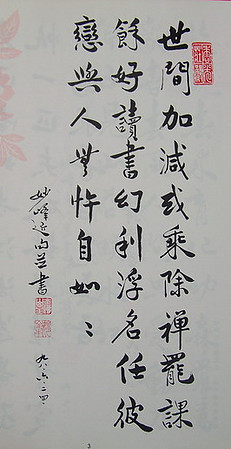 世間加減或乘除禪罷課
餘好讀書幻利浮名任彼
戀與人無忤自如〻
妙峰近書
九八·六·二四·
3